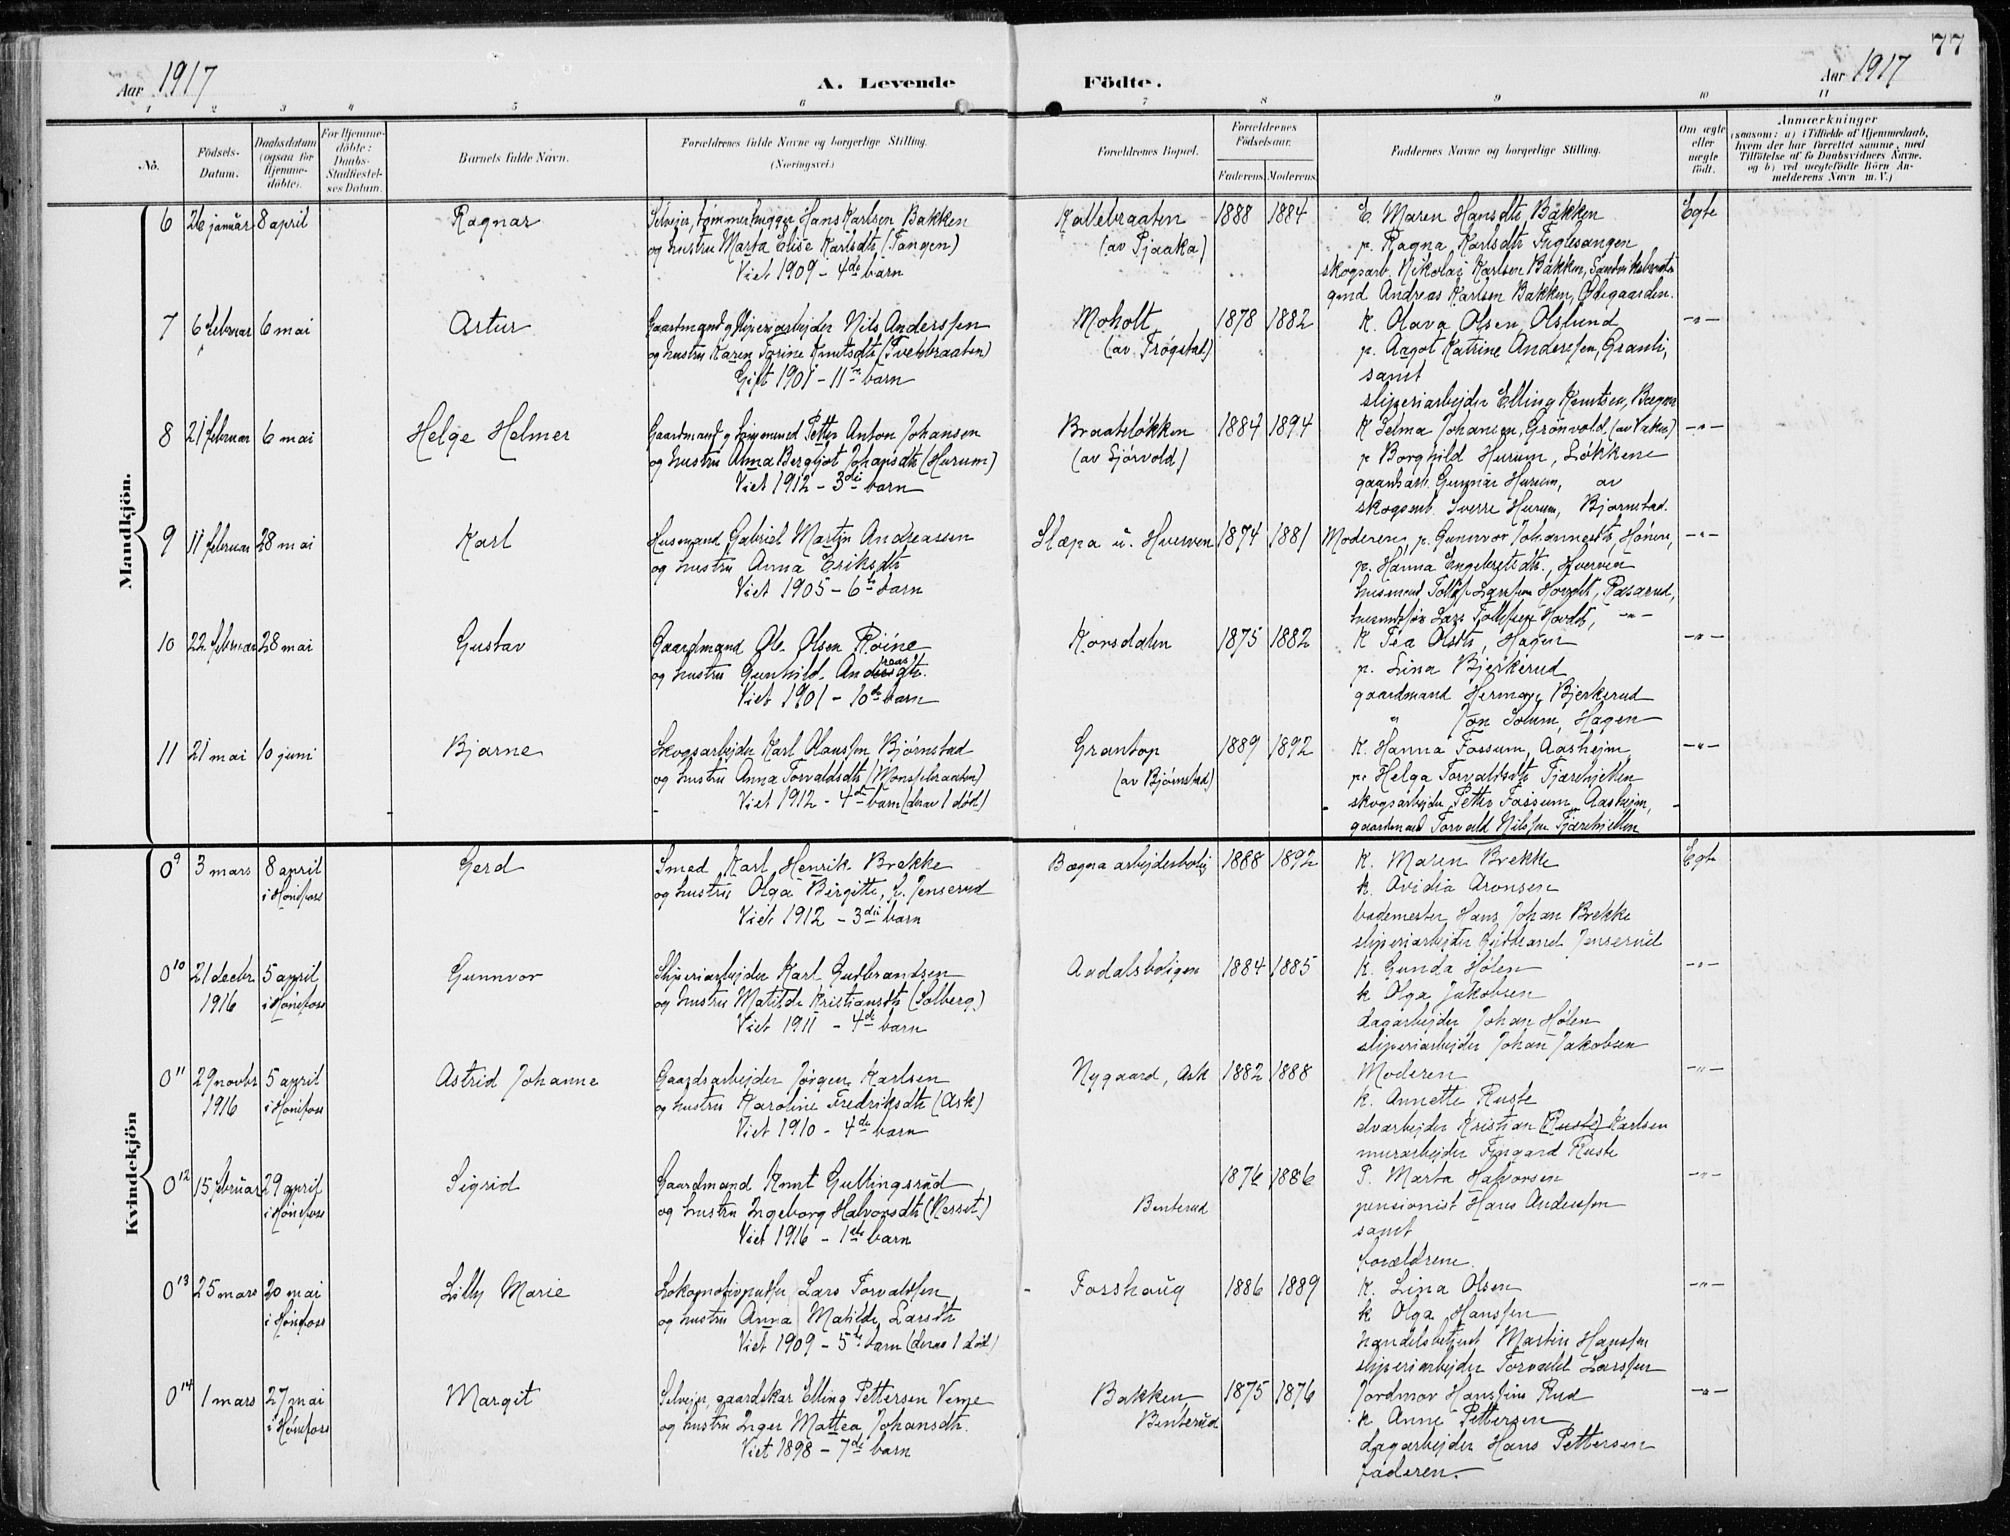 77
Aar 1917
A. Levende Födte.
Aar 1917
1 2 3 4 5 6 7 8 9 10 11
No.
Födsels-Datum.
Daabsdatum (ogsaa for Hjemme-döbte).
For Hjemme-döbte: Daabs-Stadfæstel-ses Datum.
Barnets fulde Navn.
Forældrenes fulde Navne og borgerlige Stilling. (Næringsvei.)
Forældrenes Bopæl.
Forældrenes Födselsaar.
Faderens. Moderens.
Faddernes Navne og borgerlige Stilling.
Om ægte eller uægte födt.
Anmærkninger
(saasom: a) i Tilfælde af Hjemmedaab, hvem der har forrettet samme, med Tilföielse af to Daabsvidners Navne, og b) ved uægtefödte Börn An-melderens Navn m. V.)
Mandkjön.
6 26 januar 8 april Ragnar
Selveier, tømmerhugger Hans Karlsen Bakken
og hustru Marta Elise Karlsdtr (Tangen)
Viet 1909 - 4de barn
Kallebraaten 1888 1884
(av Pjaaka)
E. Maren Hansdtr Bakken Egte
p. Ragna Karlsdtr Fuglesangen
skogsarb. Nikolai Karlsen Bakken,
gmd Andreas Karlsen Bakken, Ødegaarden.
7 6 februar 6 mai Artur
Gaardmand og sliperiarbejder Nils Anderssen
og hustru Karen Torine Knutsdtr (Tvetebraaten)
Gift 1901 - 11te barn
Moholt 1878 1882
(av Trøgstad)
K. Olava Olsen Olslund -"-
p. Aagot Katrine Anderssen, Granli,
samt
sliperiarbejder Elling Knutsen, Bægna
8 21 februar 6 mai Helge Helmer
Gaardmand og Petter Anton Johansen
og hustru Anna Bergljot Johansdtr (Hurum)
Viet 1912 - 3die barn
Braateløkken 1884 1894
(av Sjørvold)
K Selma Johansen, Grønvold, (av Vaker) -"-
p Borghild Hurum, Løkkene
gaardsarb. Gunnar Hurum, av
skogsarb. Sverre Hurum, Bjørnstad.
9 11 februar 28 mai Karl
Husmand Gabriel Martin Andreassen
og hustru Anna Eriksdtr
Viet 1905 - 6te barn
Slæpa u. Hverven 1874 1881
Moderen, p. Gunnvor Johannesdtr, Hønen, -"-
p. Hanna Engebretdtr., Hverven
husmand Tollef Larssen Hovdt, Rasarud,
Lars Tollefsen Hovdt, -"-
10 22 februar 28 mai Gustav
Gaardmand Ole Olsen Røine
og hustru Gunhild Andreasdtr.
Viet 1901 - 10de barn
Korsdalen 1875 1882
K Tea Olsdtr, Hagen -"-
p. Lina Bjerkerud
gaardmand Herman Bjerkerud
" Jon Solum, Hagen
11 21 mai 10 juni Bjarne
Skogsarbejder Karl Olaussen Bjørnstad
og hustru Anna Torvaldsdtr (Monsebraaten)
Viet 1912 - 4de barn (derav 1 død)
Grantop 1889 1892
(av Bjørnstad)
K. Hanna Fossum, Aasheim, -"-
p. Helga Torvaldsdtr Tjærehjellen
skogsarbejder Petter Fossum, Aasheim,
gaardmand Torvald Nilssen Tjærehjellen
Kvindekjön
0 9 3 mars 8 april i Hønefoss Gerd
Smed Karl Henrik Brekke
og hustru Olga Birgitte, f. Jenserud
Viet 1912 - 3die barn
Bægna arbejderbolig 1888 1892
K. Maren Brekke Egte
k. Avidia Aronsen
bademester Hans Johan Brekke
sliperiarbejder Gudbrand Jenserud
0 10 21 decbr 1916 5 april i Hønefoss Gunnvor
Sliperiarbejder Karl Gudbrandsen
og hustru Matilde Kristiansdtr (Solberg)
Viet 1911 - 4de barn
Aadalsboligen 1884 1885
K. Gunda Hølen -"-
k Olga Jakobsen
dagarbejder Johan Hølen
sliperiarbejder Johan Jakobsen
0 11 29 novbr 1916 5 april i Hønefoss Astrid Johanne
Gaardsarbejder Jørgen Karlsen
og hustru Karoline Fredriksdtr (Ask)
Viet 1910 - 4de barn
Nygaard, Ask 1882 1888
Moderen -"-
k. Annette Ruste
elvarbejder Kristian (Ruste) Karlsen
murarbejder Fingard Ruste
0 12 15 februar 29 april i Hønefoss Sigrid
Gaardmand Knut Gullingsrud
og hustru Ingeborg Halvorsdtr (Resset)
Viet 1916 - 1ste barn
Benterud 1876 1886
P. Marta Halvorsen -"-
pensionist Hans Anderssen
samt
forældrene.
0 13 25 mars 20 mai i Hønefoss Lilly Marie
Lokomotivpudser Lars Torvaldsen
og hustru Anna Matilde Larsdtr
Viet 1909 - 5te barn (derav 1 død)
Forshaug 1886 1889
K. Lina Olsen -"-
k Olga Hanssen
handelsbetjent Martin Hanssen
sliperiarbejder Torvald Larssen
0 14 1 mars 27 mai i Hønefoss Margit
Selveier, gaardskar Elling Pettersen Veme
og hustru Inger Mattea Johansdtr.
Viet 1898 - 7de barn
Bakken, Benterud 1875 1876
Jordmor Hanssine Rud -"-
k Anne Pettersen
dagarbejder Hans Pettersen
faderen.